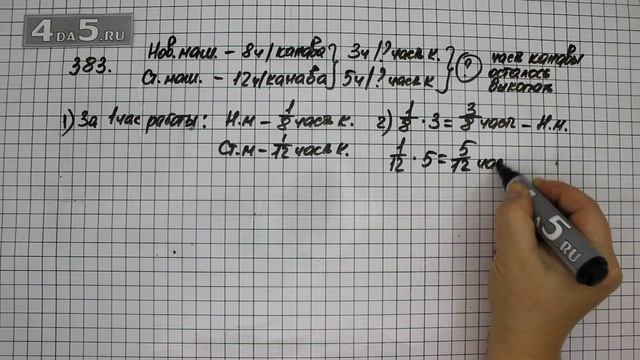 4DA5.RU
383.
Нов. маш. – 8ч/канава } 3ч/? часть к. }
Ст. маш. – 12ч/канава } 5ч/? часть к. }
? часть канавы
осталось
выкопать
1) За 1 час работы: Н.м – 1/8 часть к.
Ст.м – 1/12 часть к.
2) 1/8 · 3 = 3/8 част – Н.м.
1/12 · 5 = 5/12 час
5.RU